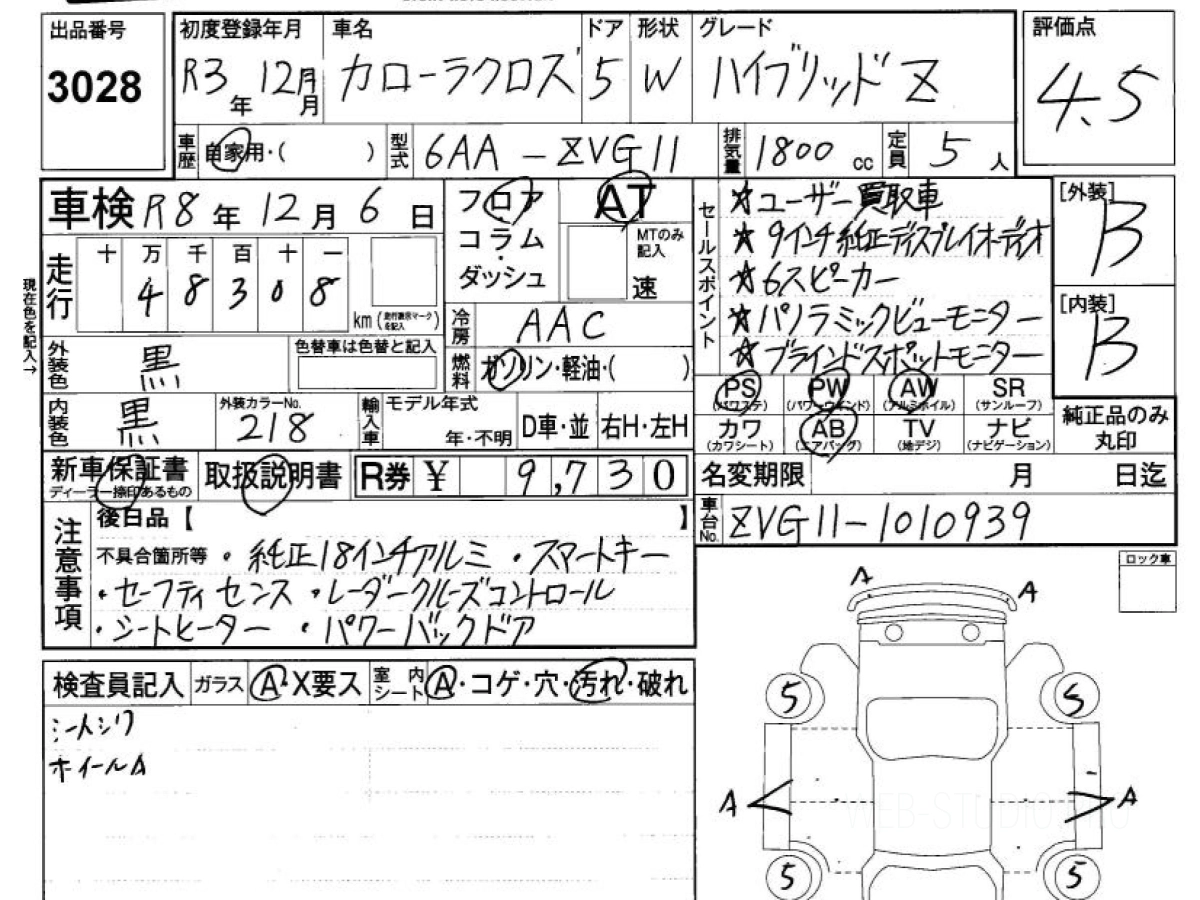 出品番号
3028
初度登録年月
R3年 12月月
車名
カローラクロス
ドア
5
形状
W
グレード
ハイブリッド Z
評価点
4.5
車歴
自家用・( )
型式
6AA-ZVG11
排気量
1800 cc
定員
5人
車検 R8年 12月 6日
フロア
コラム
・
ダッシュ
AT
MTのみ記入
速
セールスポイント
☆ユーザー買取車
☆9インチ純正ディスプレイオーディオ
☆6スピーカー
☆パノラミックビューモニター
☆ブラインドスポットモニター
[外装]
B
[内装]
B
現在色を記入→
走行
十 万 千 百 十 一
4 8 3 0 8
km(走行表示マークを記入)
冷房
AAC
外装色
黒
色替車は色替と記入
燃料
ガソリン・軽油・( )
PS
(パワステ)
PW
(パワーウインド)
AW
(アルミホイル)
SR
(サンルーフ)
内装色
黒
外装カラーNo.
218
輸入車
モデル年式
年・不明
D車・並
右H・左H
カワ
(カワシート)
AB
(エアバッグ)
TV
(地デジ)
ナビ
(ナビゲーション)
純正品のみ
丸印
新車保証書
ディーラー捺印あるもの
取扱説明書
R券 ¥ 9,730
名変期限 月 日迄
注意事項
後日品【 】
車台No.
ZVG11-1010939
不具合箇所等 ・純正18インチアルミ ・スマートキー
・セーフティセンス ・レーダークルーズコントロール
・シートヒーター ・パワーバックドア
ロック車
検査員記入
ガラス
A・X要ス
室内シート
A・コゲ・穴・汚れ・破れ
シートシワ
ホイールA
A
A
5
5
A
A
WEB-STUDIO.PRO
5
5